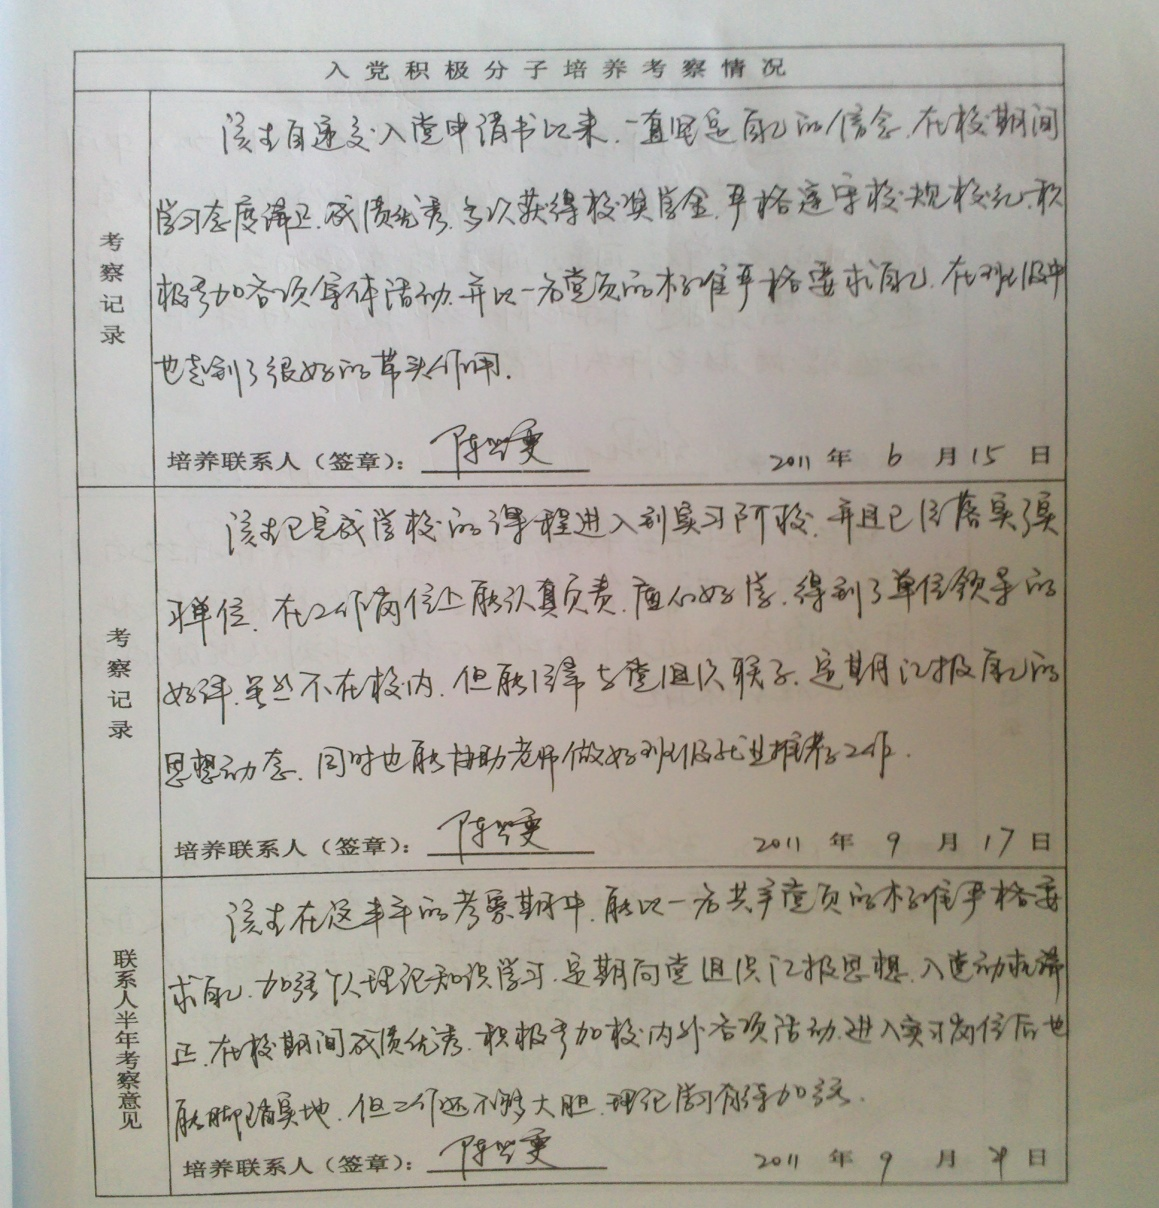 入党积极分子培养考察情况
考察记录
该生自递交入党申请书以来，一直坚定自己的信念，在校期间
学习态度端正，成绩优秀，多次获得校奖学金，严格遵守校规校纪，积
极参加各项集体活动，并以一名党员的标准严格要求自己，在班级中
也起到了很好的带头作用。
培养联系人（签章）：
2011 年 6 月 15 日
考察记录
该生已完成学校的课程进入到实习阶段，并且已经落实了实
习单位，在工作岗位上能认真负责，虚心好学，得到了单位领导的
好评，虽然不在校内，但能经常与党组织联系，定期汇报自己的
思想动态，同时也能协助老师做好班级就业推荐工作。
培养联系人（签章）：
2011 年 9 月 17 日
联系人半年考察意见
该生在这半年的考察期中，能以一名共产党员的标准严格要
求自己，加强理论知识学习，定期向党组织汇报思想，入党动机端
正，在校期间成绩优秀，积极参加校内外各项活动，进入实习岗位后也
能脚踏实地，但工作还不够大胆，理论学习有待加强。
培养联系人（签章）：
2011 年 9 月 日